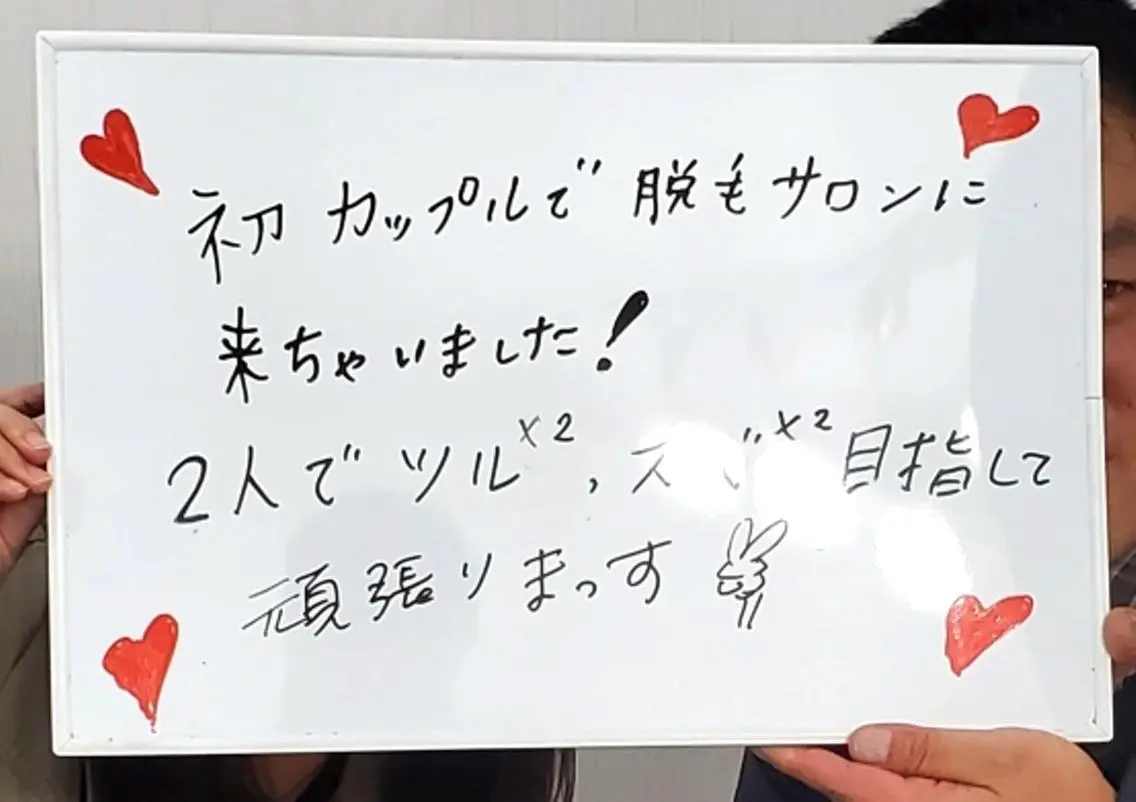 初カップルで脱毛サロンに
来ちゃいました！
2人でツル×2,スベ×2目指して
頑張りまっす